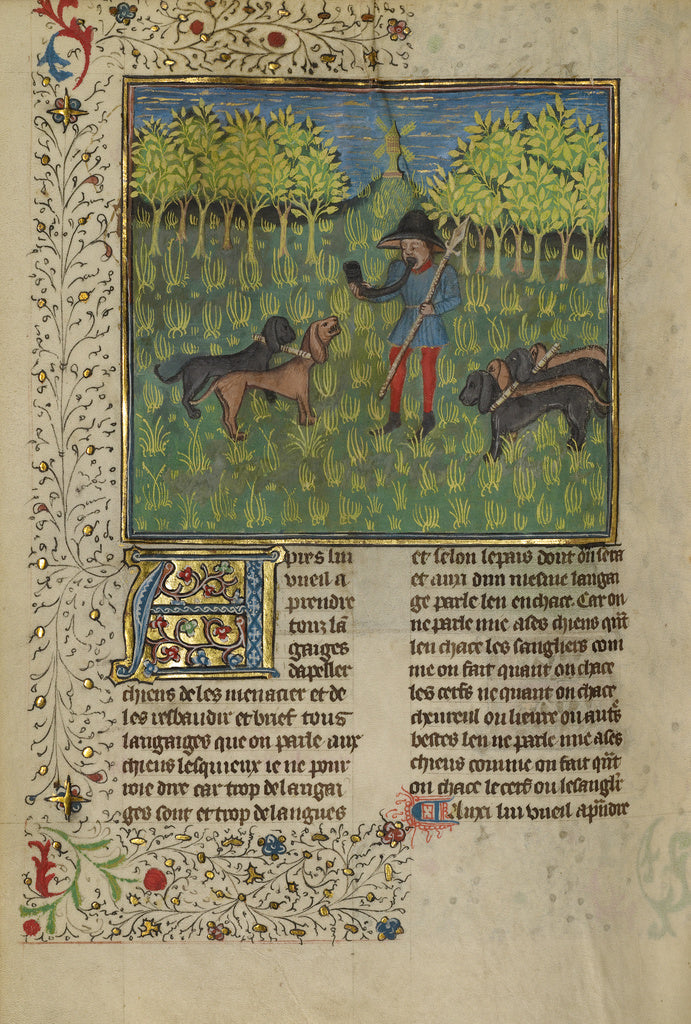 Apres lui
vueil a
prendre
touz la
gaiges
dapeller
chiens de les menacier et de
les resbaudir et brief tous
langaiges que on parle aux
chiens lesquieux ie ne pour
roie dire car trop de langai
ges sont et trop de langues
et selon le pais dont on sera
et aux dun mesme langai
ge parle len en chace. Car on
ne parle mie a ses chiens qñt
len chace les sangliers com
me on fait quant on chace
les cerfs ne quant on chace
cheureul ou lieure ou autrs
bestes len ne parle mie a ses
chiens comme on fait qñt
on chace le cerf ou le sanglr
lui vueil apñdre